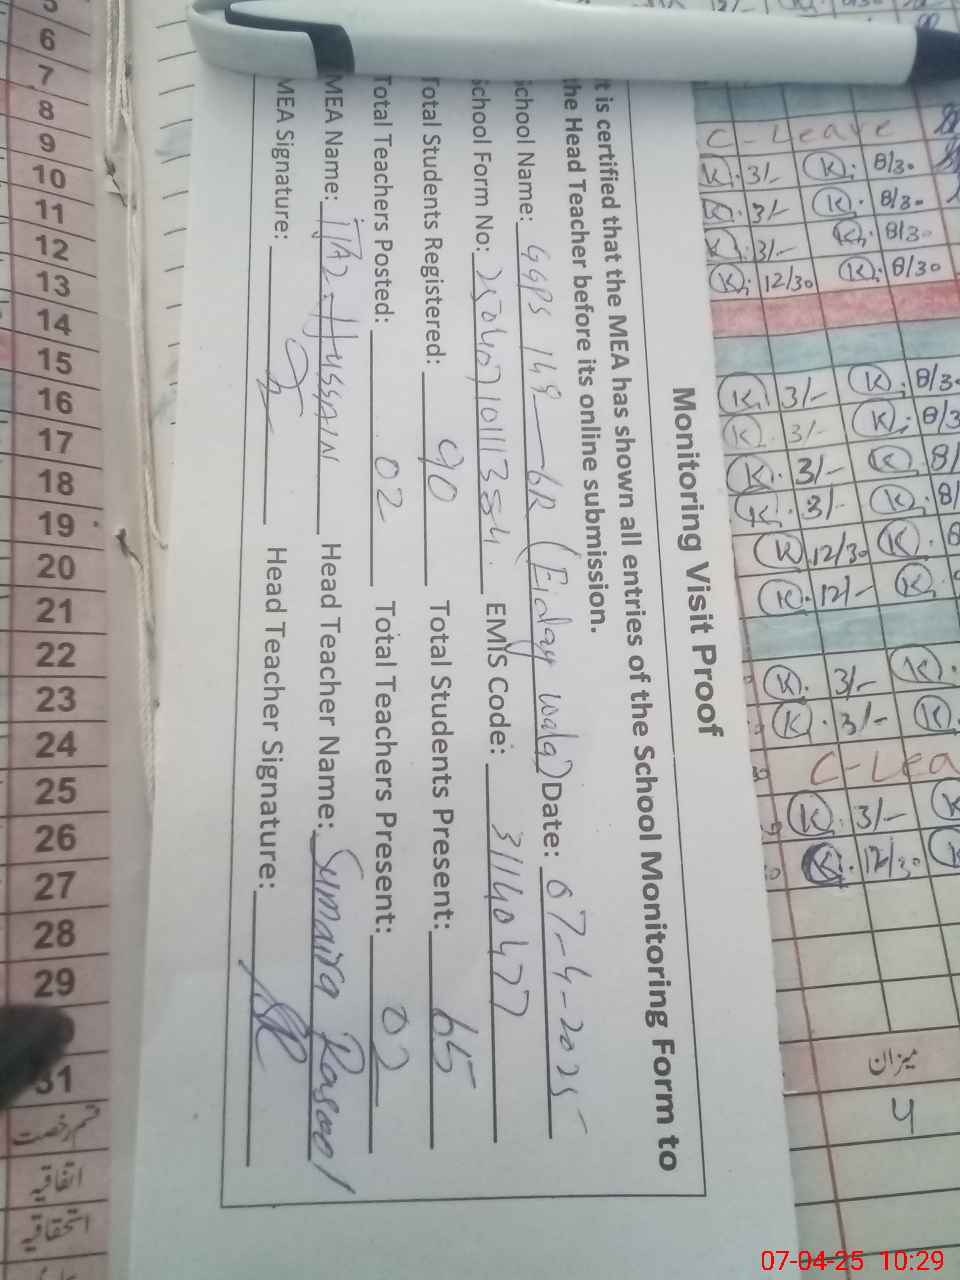 Monitoring Visit Proof
It is certified that the MEA has shown all entries of the School Monitoring Form to
the Head Teacher before its online submission.
School Name: GGPS 149-6R (Eiday wala) Date: 07-4-2025
School Form No: EMIS Code: 31140477
Total Students Registered: 90 Total Students Present: 65
Total Teachers Posted: 02 Total Teachers Present: 02
MEA Name: IJAZ HUSSAIN Head Teacher Name: Sumaira Rasool
MEA Signature: Head Teacher Signature:
6
7
8
9
10
11
12
13
14
15
16
17
18
19
20
21
22
23
24
25
26
27
28
29
31
قسم رخصت
اتفاقیہ
استحقاقیہ
C-Leave
K. 3/- K. 8/30
K. 3/- K. 8/30
K. 3/- K. 8/30
K. 12/30 K. 8/30
K. 3/- K. 8/3
K. 3/- K. 8/3
K. 3/- K. 8/
K. 3/- K. 8/
K. 12/30 K. 8
K. 12/- K.
K. 3/- K.
K. 3/- K.
C-Lea
K. 3/- K
K. 12/30 K
میزان
4
07-04-25 10:29